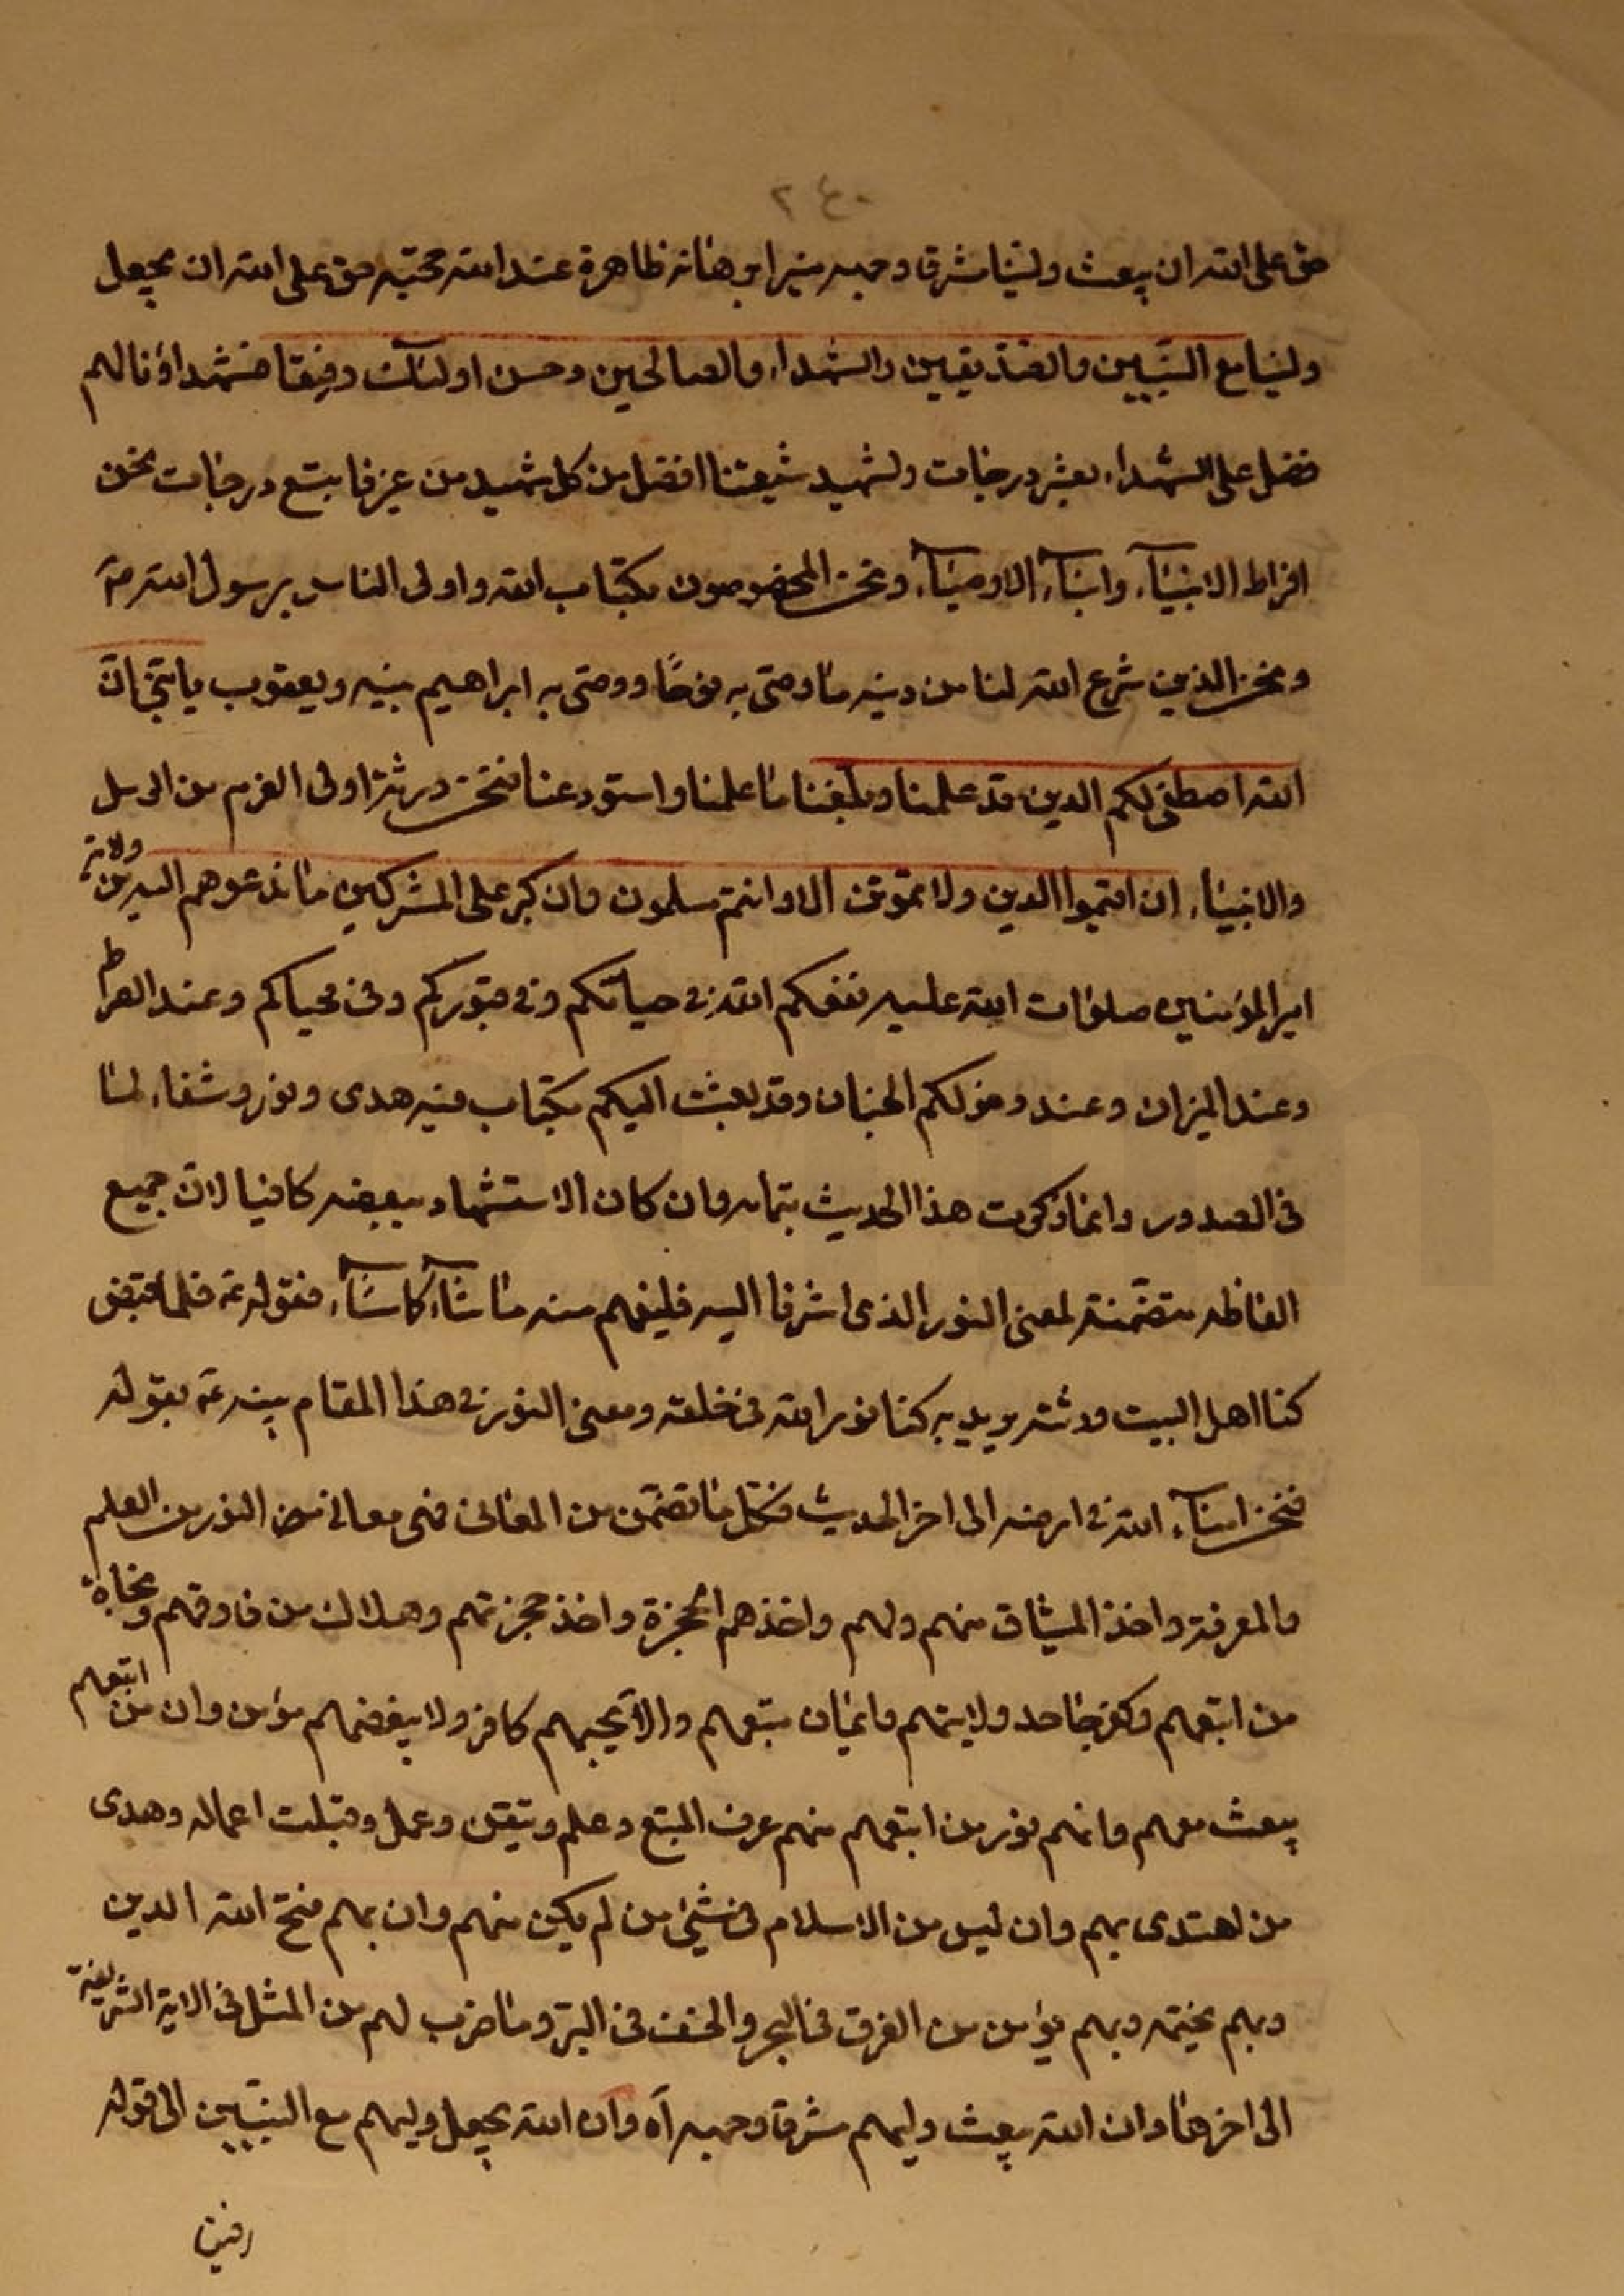 ٢٤٠
حق على الله ان يبعث ولينا مشرقا وجهه منيرا برهانه ظاهرة عند الله حجته حق على الله ان يجعل
ولينا مع النبيين والصديقين والشهداء والصالحين وحسن اولئك رفيقا فشهداؤنا لهم
فضل على الشهداء بعشر درجات ولشهيد شيعتنا افضل من كل شهيد من غيرنا بتسع درجات نحن
افراط الانبياء وابناء الاوصياء ونحن المخصوصون بكتاب الله واولى الناس برسول الله ص
ونحن الذين شرع الله لنا من دينه ما وصى به نوحًا ووصى به ابراهيم بنيه ويعقوب يا بنى ان
الله اصطفى لكم الدين قد علمنا وبلغنا ما علمنا واستودعنا فنحن ورثة اولى العزم من الرسل
والانبياء ان اقيموا الدين ولا تموتن الا وانتم مسلمون وان كبر على المشركين ما تدعوهم اليه من ولاية
امير المؤمنين صلوات الله عليه نفعكم الله فى حياتكم وفى قبوركم وفى محياكم وعند الصراط
وعند الميزان وعند دخولكم الجنان وقد بعثت اليكم بكتاب فيه هدى ونور وشفاء لما
فى الصدور وانما ذكرت هذا الحديث بتمامه وان كان الاستشهاد ببعضه كافيا لان جميع
الفاظه متضمنة لمعنى النور الذى اشرنا اليه فليفهم منه ما شاء كما شاء فقوله ع فلما قبض
كنا اهل البيت ورثته يريد به كنا نور الله فى خلقه ومعنى النور فى هذا المقام بينه ع بقوله
فنحن امناء الله فى ارضه الى اخر الحديث فكل ما تضمن من المعانى فهى معانى النور من العلم
والمعرفة واخذ الميثاق منهم ولهم واخذهم الحجزة واخذ حجزتهم وهلاك من فارقهم ونجاة
من اتبعهم وكفر جاحد ولايتهم وايمان متبعهم والا يحبهم كافر ولا يبغضهم مؤمن وان من اتبعهم
يبعث معهم وانهم نور من اتبعهم منهم عرف المتبع وعلم وتيقن وعمل وقبلت اعماله وهدى
من اهتدى بهم وان ليس من الاسلام فى شىء من لم يكن منهم وان بهم فتح الله الدين
وبهم يختمه وبهم يؤمن من الغرق فى البحر والخسف فى البر وما ضرب لهم من المثل فى الاية الشريفة
الى اخرها وان الله يبعث وليهم مشرقا وجهه آه وان الله يجعل وليهم مع النبيين الى قوله
رفيقا